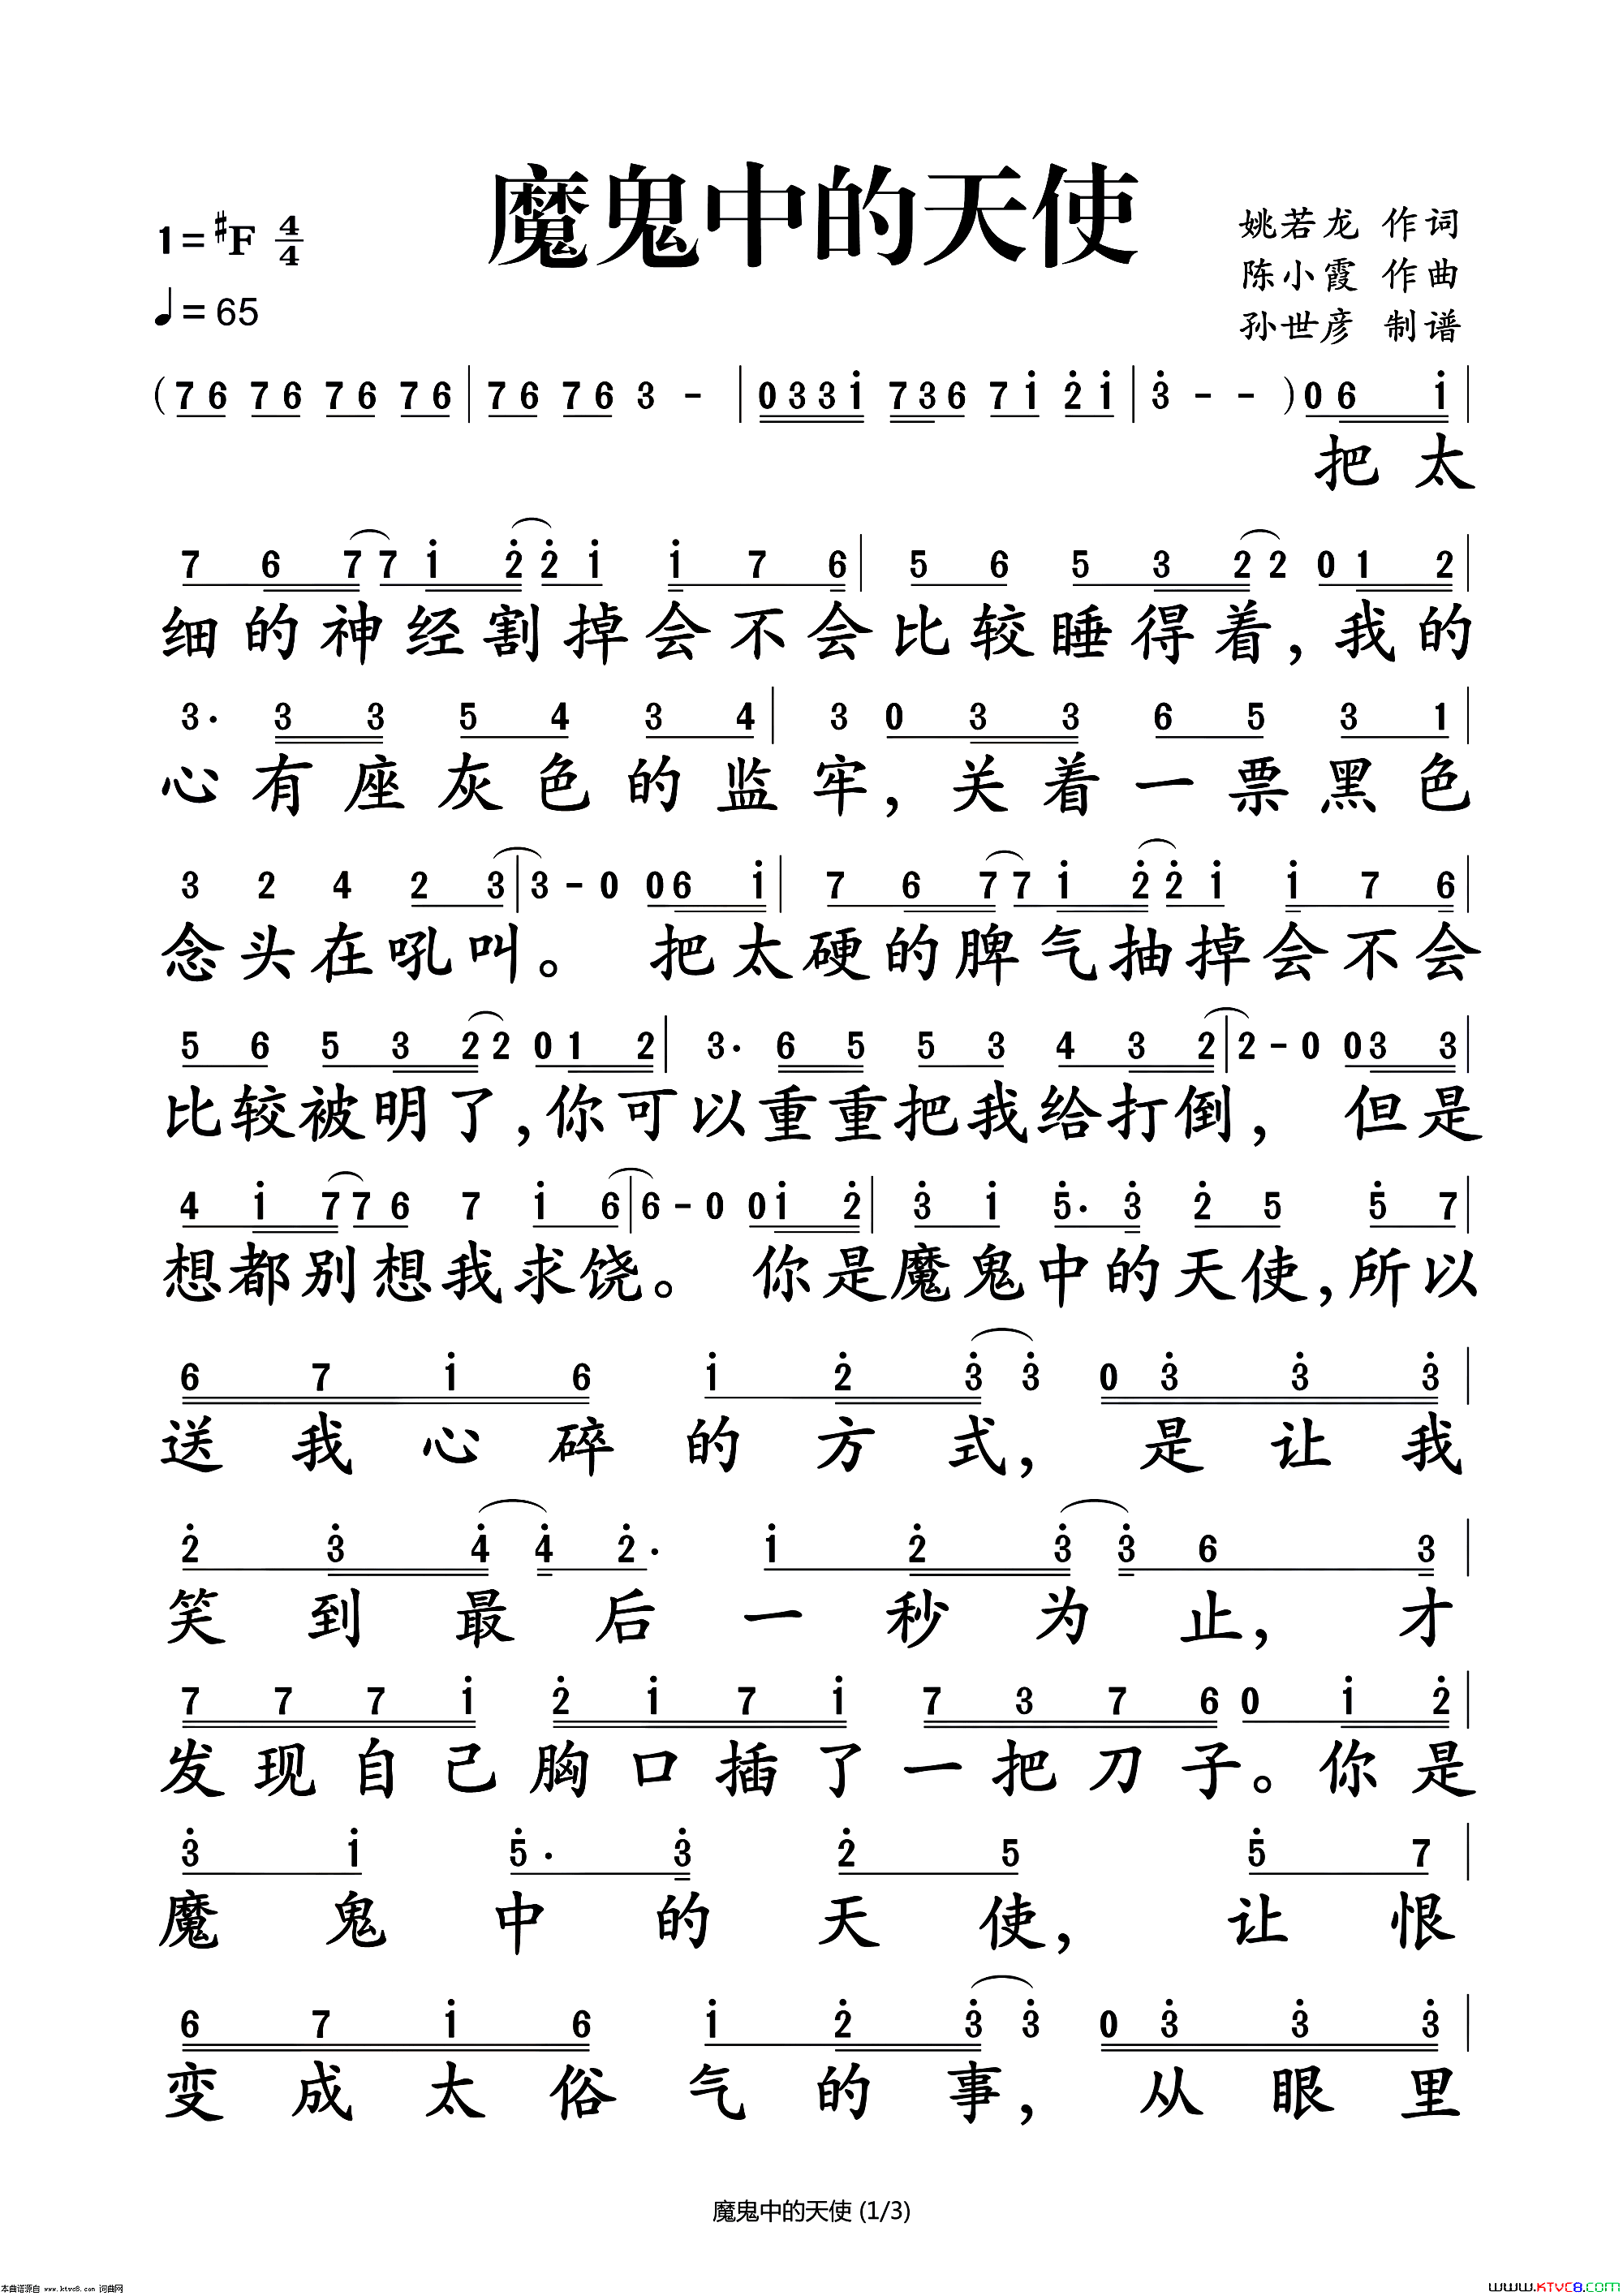 魔鬼中的天使
1=♯F 4/4
♩=65
姚若龙 作词
陈小霞 作曲
孙世彦 制谱
(76 76 76 76|76 76 3 - |033i̇ 736 7i̇ 2̇i̇|3̇ - - )06 i̇|
把太
7 6 77i̇ 2̇2̇i̇ i̇ 7 6|5 6 5 3 22 01 2|
细的神经割掉会不会比较睡得着,我的
3· 3 3 5 4 3 4|3 0 3 3 6 5 3 1|
心有座灰色的监牢,关着一票黑色
3 2 4 2 3|3-0 06 i̇|7 6 77i̇ 2̇2̇i̇ i̇ 7 6|
念头在吼叫。 把太硬的脾气抽掉会不会
5 6 5 3 22 01 2|3· 6 5 5 3 4 3 2|2-0 03 3|
比较被明了,你可以重重把我给打倒, 但是
4 i̇ 776 7 i̇ 6|6-0 0i̇ 2̇|3̇ i̇ 5̇· 3̇ 2̇ 5 5̇ 7|
想都别想我求饶。 你是魔鬼中的天使,所以
6 7 i̇ 6 i̇ 2̇ 3̇3̇ 03̇ 3̇ 3̇|
送我心碎的方式,是让我
2̇ 3̇ 4̇4̇ 2̇· i̇ 2̇ 3̇3̇ 6 3̇|
笑到最后一秒为止,才
7 7 7 i̇ 2̇ i̇ 7 i̇ 7 3 7 6 0 i̇ 2̇|
发现自己胸口插了一把刀子。你是
3̇ i̇ 5̇· 3̇ 2̇ 5 5̇ 7|
魔鬼中的天使,让恨
6 7 i̇ 6 i̇ 2̇ 3̇3̇ 03̇ 3̇ 3̇|
变成太俗气的事,从眼里
魔鬼中的天使 (1/3)
本曲谱源自 www.ktvc8.com 词曲网
www.KTVC8.com